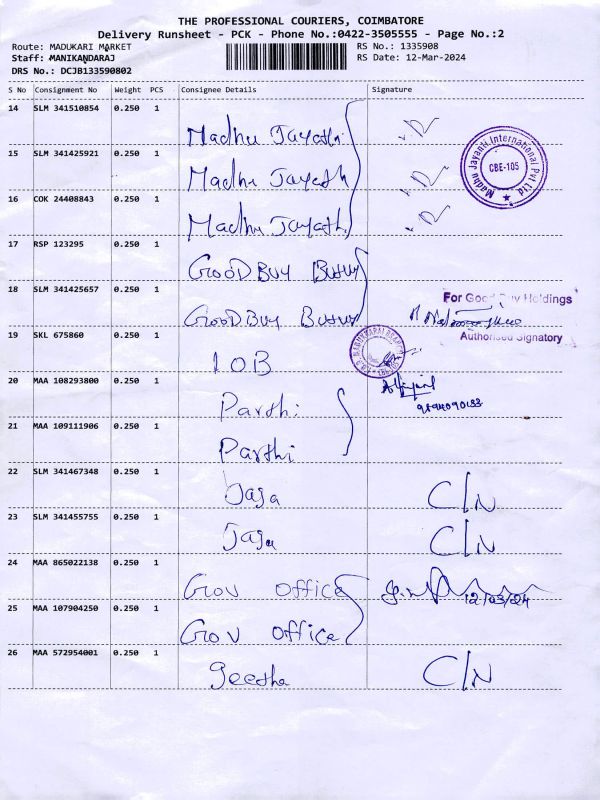 THE PROFESSIONAL COURIERS, COIMBATORE
Delivery Runsheet - PCK - Phone No.:0422-3505555 - Page No.:2
Route: MADUKARI MARKET RS No.: 1335908
Staff: MANIKANDARAJ RS Date: 12-Mar-2024
DRS No.: DCJB133590802
S No Consignment No Weight PCS Consignee Details Signature
14 SLM 341510854 0.250 1 Madhu Jayathi
15 SLM 341425921 0.250 1 Madhu Jayath
16 COK 24408843 0.250 1 Madhu Jayath
Madhu Jayanti International Pvt Ltd
CBE-105
17 RSP 123295 0.250 1 GooD Buy
18 SLM 341425657 0.250 1 GooD Buy
For Good Buy Holdings
Authorised Signatory
19 SKL 675860 0.250 1 IOB
20 MAA 108293800 0.250 1 Parthi
21 MAA 109111906 0.250 1 Parthi
22 SLM 341467348 0.250 1 Jaga C/N
23 SLM 341455755 0.250 1 Jaga C/N
24 MAA 865022138 0.250 1 Gov office 12/03/24
25 MAA 107904250 0.250 1 Gov office
26 MAA 572954001 0.250 1 geetha C/N